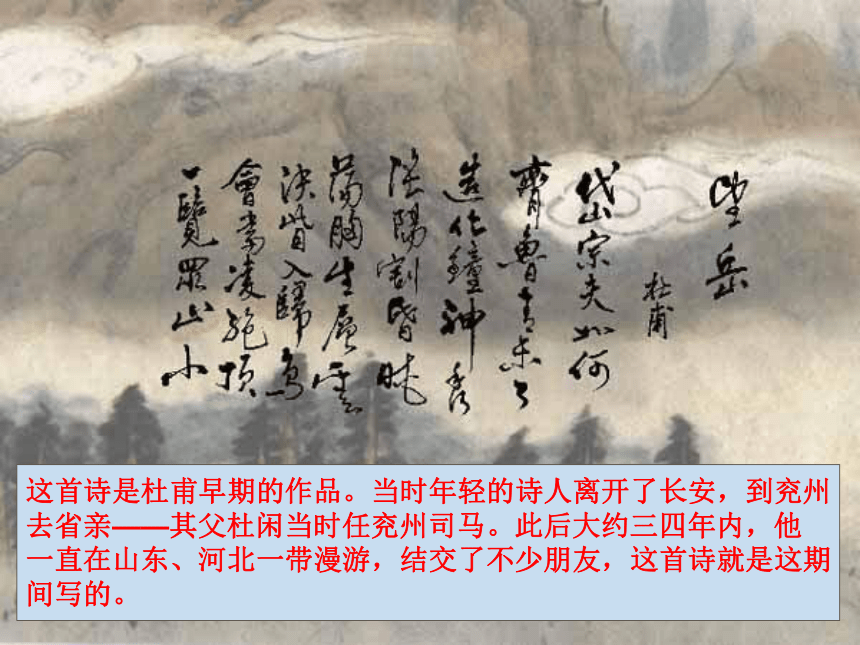 望岳
杜甫
岱宗夫如何
齊魯青未了
造化鍾神秀
陰陽割昏曉
蕩胸生層雲
決眥入歸鳥
會當凌絕頂
一覽眾山小
这首诗是杜甫早期的作品。当时年轻的诗人离开了长安，到兖州
去省亲——其父杜闲当时任兖州司马。此后大约三四年内，他
一直在山东、河北一带漫游，结交了不少朋友，这首诗就是这期
间写的。